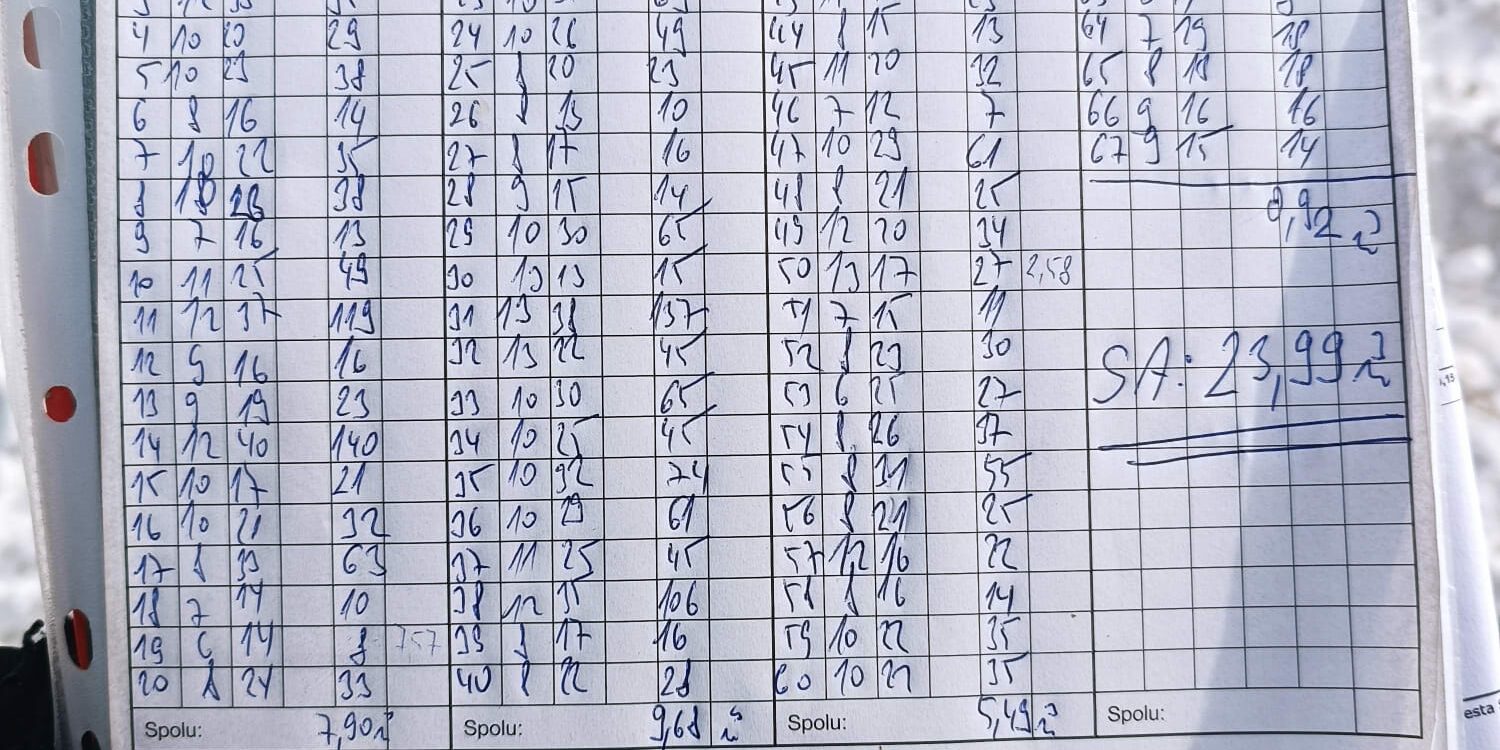 4 10 20 29 24 10 26 49 44 8 15 13 64 7 19 18
5 10 23 38 25 8 20 23 45 11 20 32 65 8 18 18
6 8 16 14 26 8 13 10 46 7 12 7 66 9 16 16
7 10 22 35 27 8 17 16 47 10 29 61 67 9 15 14
8 10 23 38 28 9 15 14 48 8 21 25
9 7 16 13 29 10 30 65 49 12 20 34 0,92 m³
10 11 25 49 30 13 13 15 50 13 17 27 2,58
11 12 37 119 31 13 38 137 51 7 15 11
12 9 16 16 32 13 22 45 52 8 23 30 SA: 23,99 m³
13 9 19 23 33 10 30 65 53 6 25 27
14 12 40 140 34 10 25 45 54 8 26 37
15 10 17 21 35 10 32 74 55 8 31 55
16 10 21 32 36 10 29 61 56 8 21 25
17 8 33 63 37 11 25 45 57 12 16 22
18 7 14 10 38 12 35 106 58 8 16 14
19 6 14 8 757 39 8 17 16 59 10 22 35
20 8 24 33 40 8 22 28 60 10 22 35
Spolu: 7,90 m³ Spolu: 9,68 m³ Spolu: 5,49 m³ Spolu: